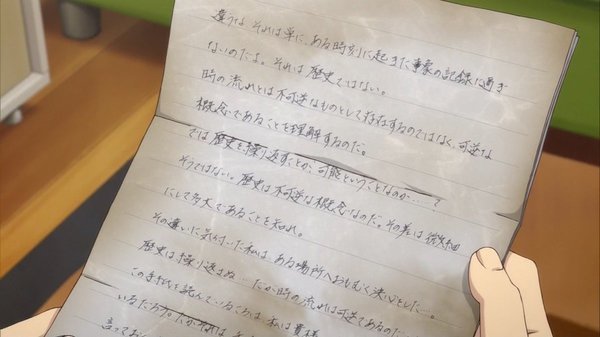 違うな それは単に、ある時刻に起きた事象の記録に過ぎ
ないのだよ。それは歴史ではない。
時の流れとは不可逆なものとして存在するのではなく、可逆な
概念であることを理解するのだ。
では歴史を繰り返すことが、可能ということなのか……？
そうではない。歴史は不可逆な概念なのだ。その差は微細
にして多大であることを知れ。
その違いに気付いた私は、ある場所へおもむく決心をした…。
歴史は繰り返さぬ…だが時の流れは可逆であるのだ
この手紙を読んでいるころは、私は貴様
いるだろう。だがそれは
言っておく